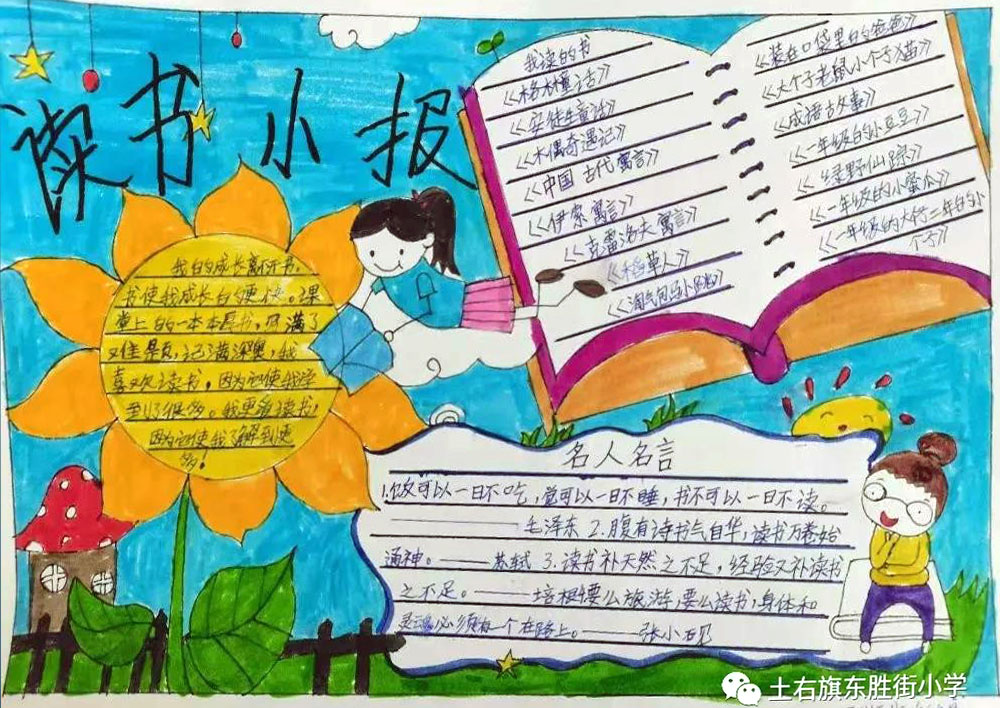 读书小报
我读的书
《格林童话》
《安徒生童话》
《木偶奇遇记》
《中国古代寓言》
《伊索寓言》
《克雷洛夫寓言》
《稻草人》
《淘气包马小跳》
《装在口袋里的爸爸》
《大个子老鼠小个子猫》
《成语故事》
《一年级的小豆豆》
《绿野仙踪》
《一年级的小蜜瓜》
《一年级的大个二年的小
个子》
我的成长离不开书,
书使我成长
课
堂上的一本本
书,
满了
记满深奥,我
喜欢读书,因为它使我学
到了很多。我更爱读书,
因为它使我了解到更
多!
名人名言
1.饭可以一日不吃,觉可以一日不睡,书不可以一日不读。
——毛泽东 2.腹有诗书气自华,读书万卷始
通神。——苏轼 3.读书补天然之不足,经验又补读书
之不足。——培根 要么旅游,要么读书,身体和
灵魂必须有一个在路上。——张小砚
土右旗东胜街小学